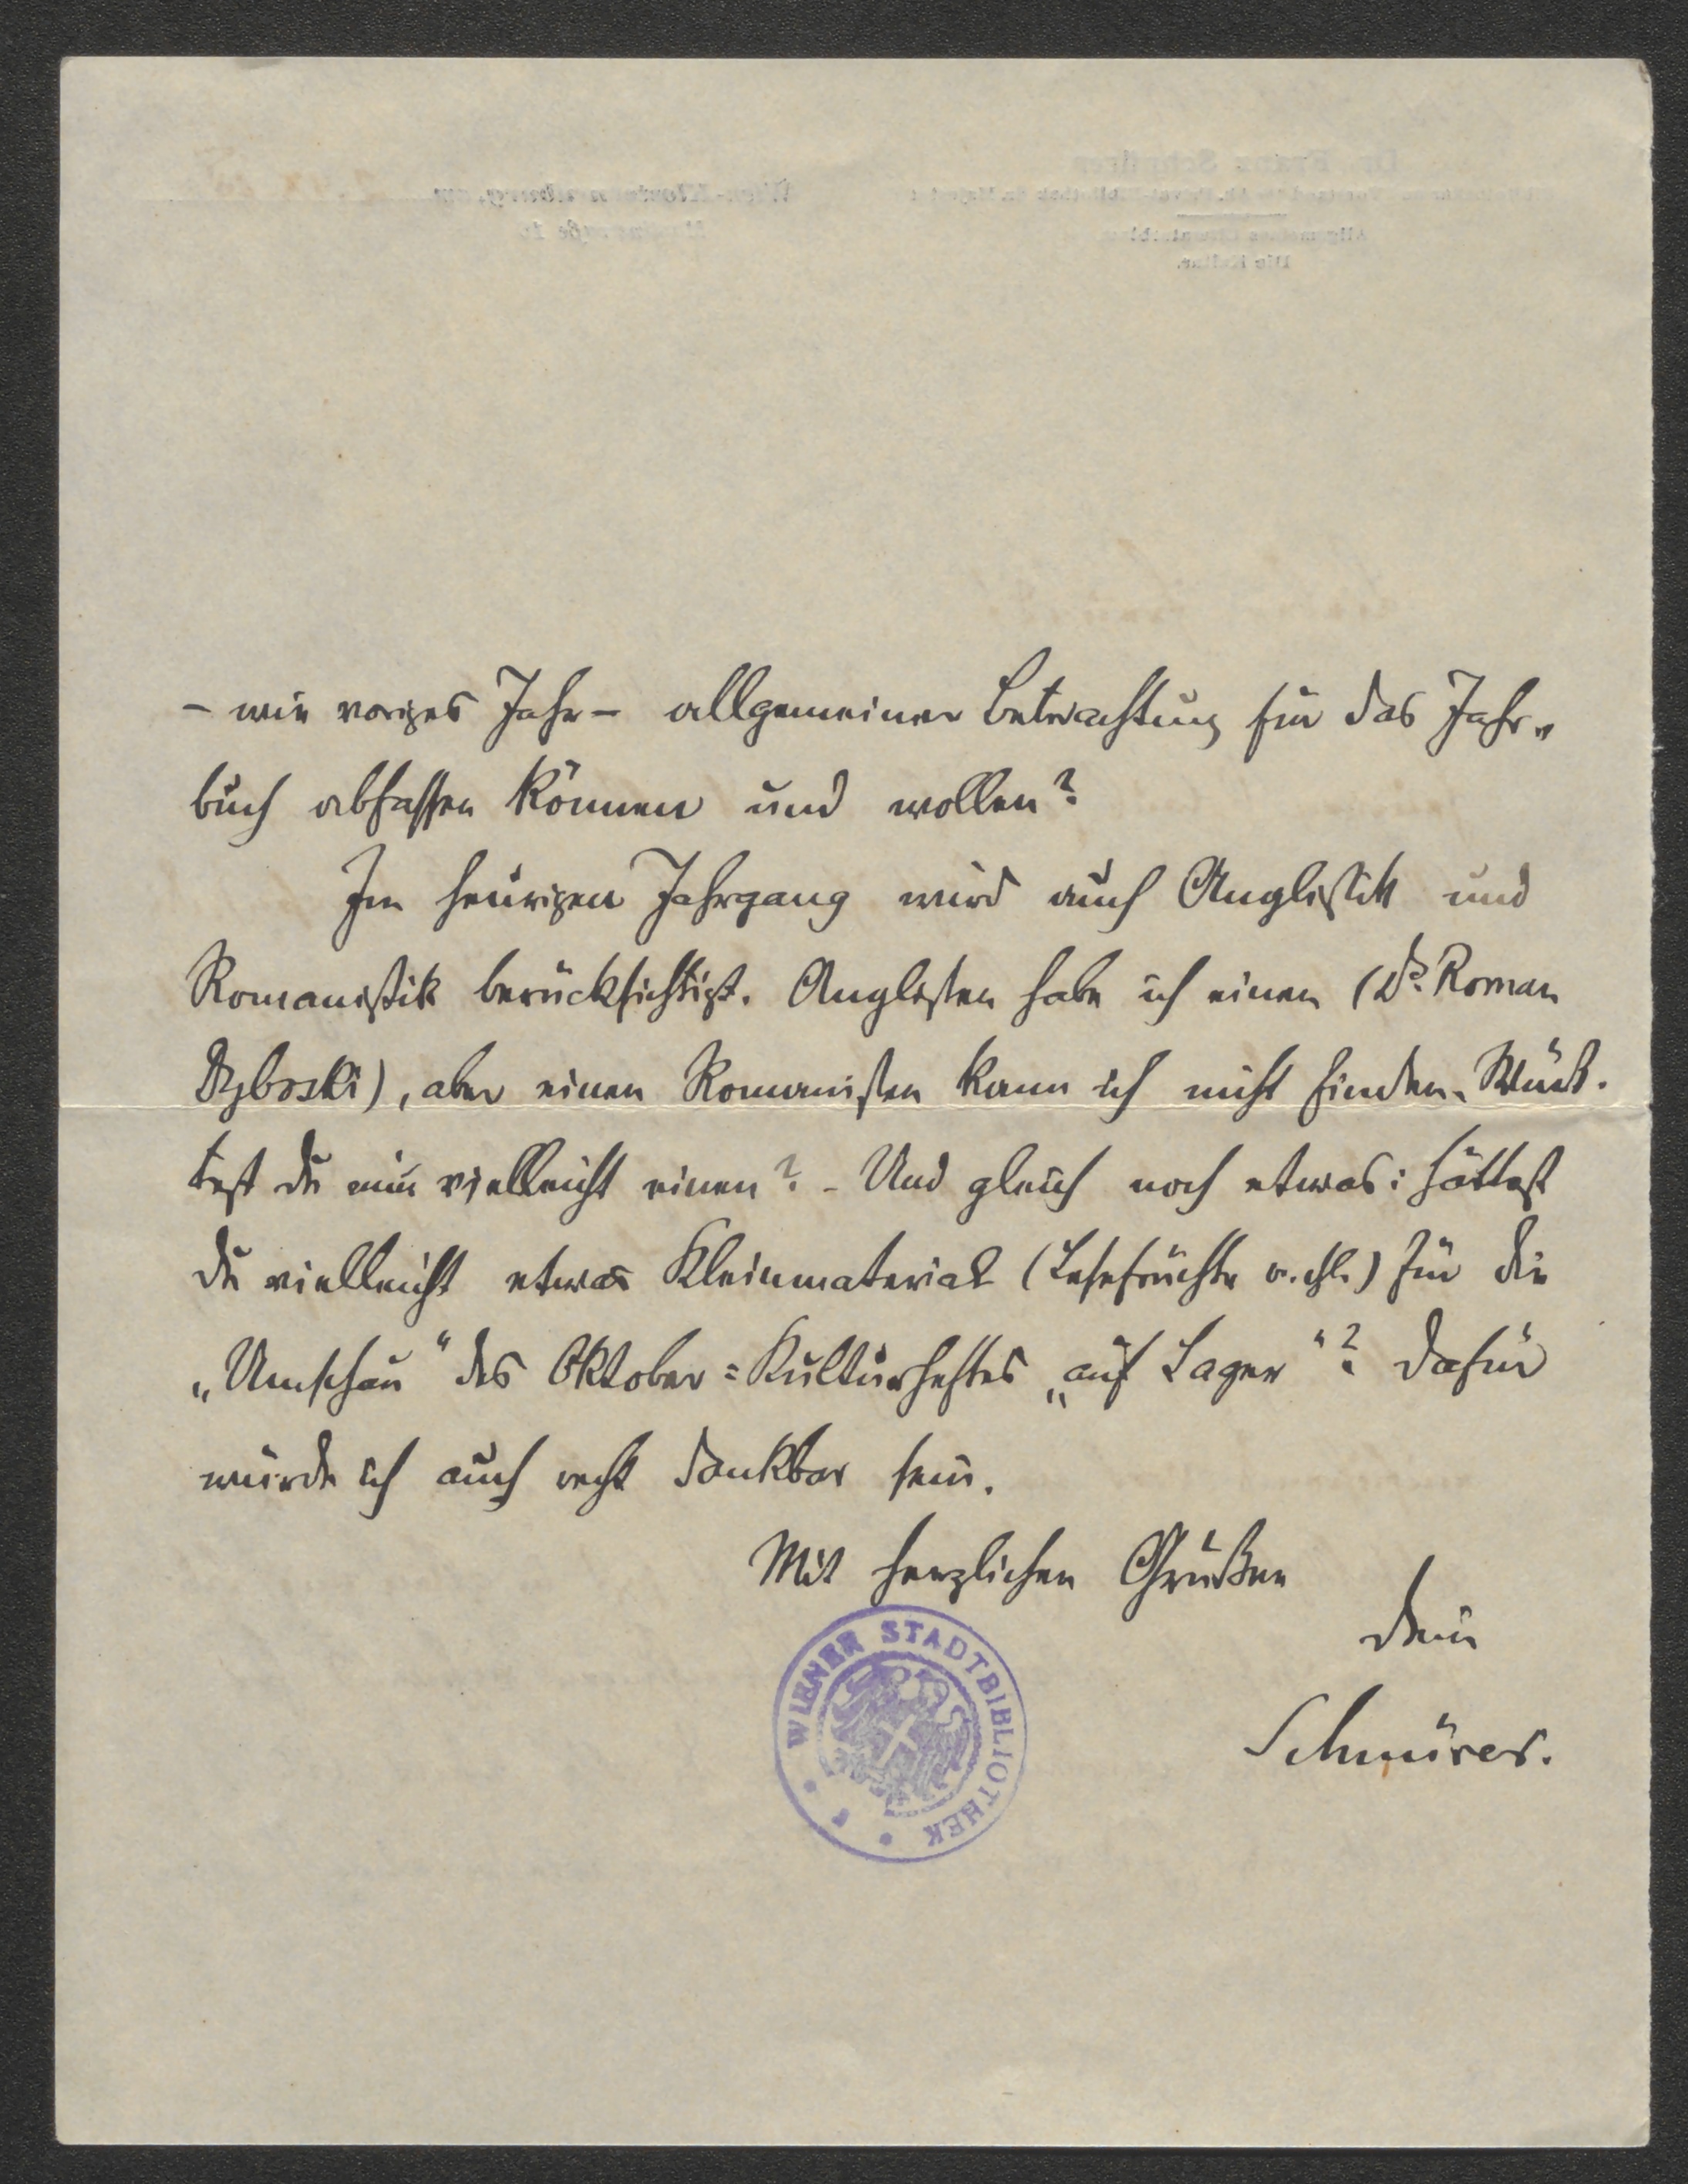 – wie voriges Jahr – allgemeiner Betrachtung für das Jahr„
buch abfassen können und wollen?
Im heurigen Jahrgang wird auch Anglistik und
Romanistik berücksichtigt. Anglisten habe ich einen (Dr. Roman
Dyboski), aber einen Romanisten kann ich nicht finden. Wüß-
test du mir vielleicht einen? – Und gleich noch etwas: hättest
du vielleicht etwas Kleinmaterial (Lesefrüchte u. dgl.) für die
„Umschau“ des Oktober=Kulturheftes „auf Lager“? Dafür
würde ich auch recht dankbar sein.
Mit herzlichen Grüßen
Dein
Schnürer.
WIENER STADTBIBLIOTHEK